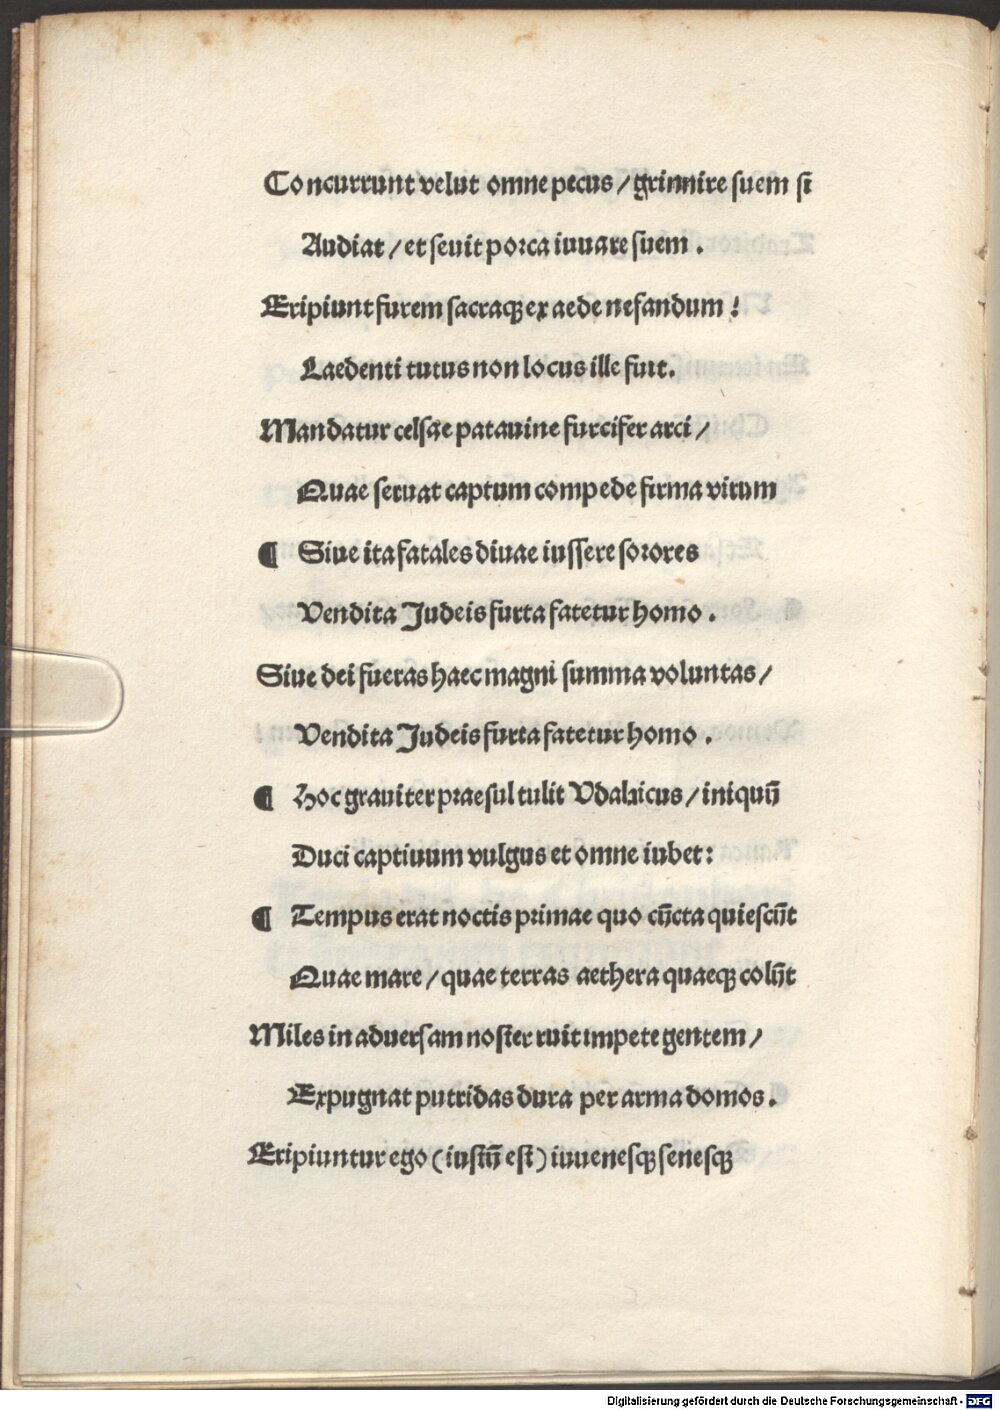 Concurrunt velut omne pecus / grinnire suem si
Audiat / et seuit porca iuuare suem .
Eripiunt furem sacraqꝫ ex aede nefandum !
Laedenti tutus non locus ille fuit.
Mandatur celsae patauine furcifer arci /
Quae seruat captum compede firma virum
¶ Siue ita fatales diuae iussere sorores
Vendita Judeis furta fatetur homo .
Siue dei fueras haec magni summa voluntas /
Vendita Judeis furta fatetur homo .
¶ Hoc grauiter praesul tulit Vdalricus / iniquū
Duci captiuum vulgus et omne iubet:
¶ Tempus erat noctis primae quo cūcta quiescūt
Quae mare / quae terras aethera quaeqꝫ colūt
Miles in aduersam noster ruit impete gentem /
Expugnat putridas dura per arma domos .
Eripiuntur ego ( iustū est ) iuuenesqꝫ senesqꝫ
Digitalisierung gefördert durch die Deutsche Forschungsgemeinschaft - DFG